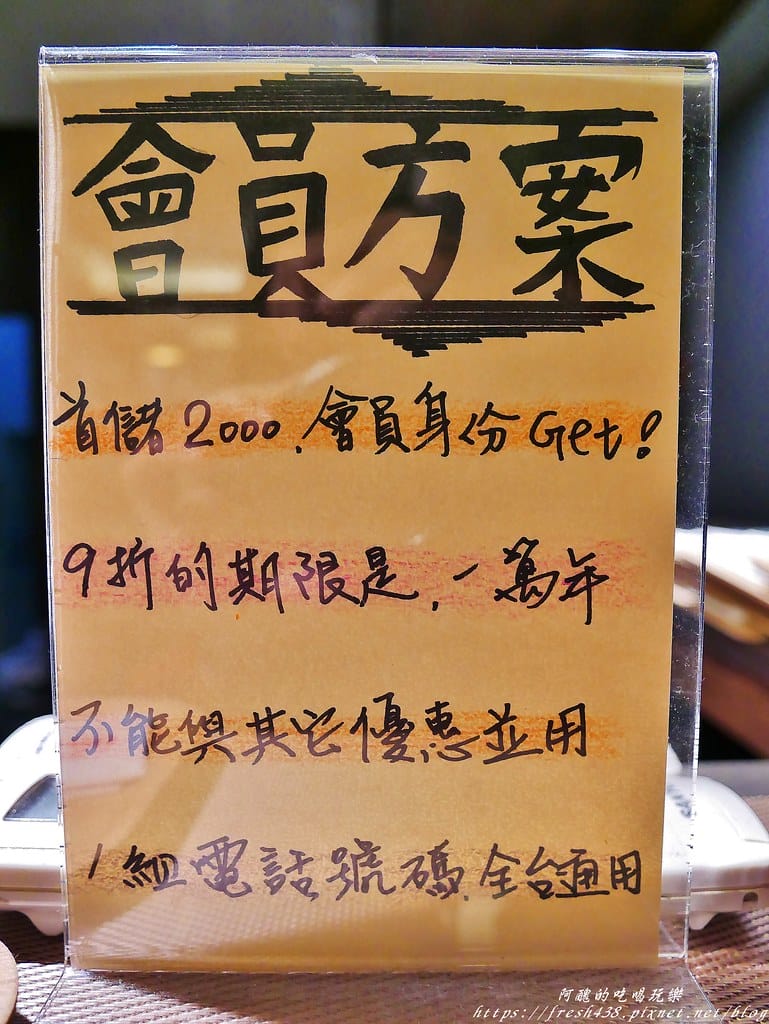 會員方案
首儲2000,會員身份Get!
9折的期限是,一萬年
不能與其它優惠並用
1組電話號碼,全台通用
阿醜的吃喝玩樂
https://fresh438.pixnet.net/blog